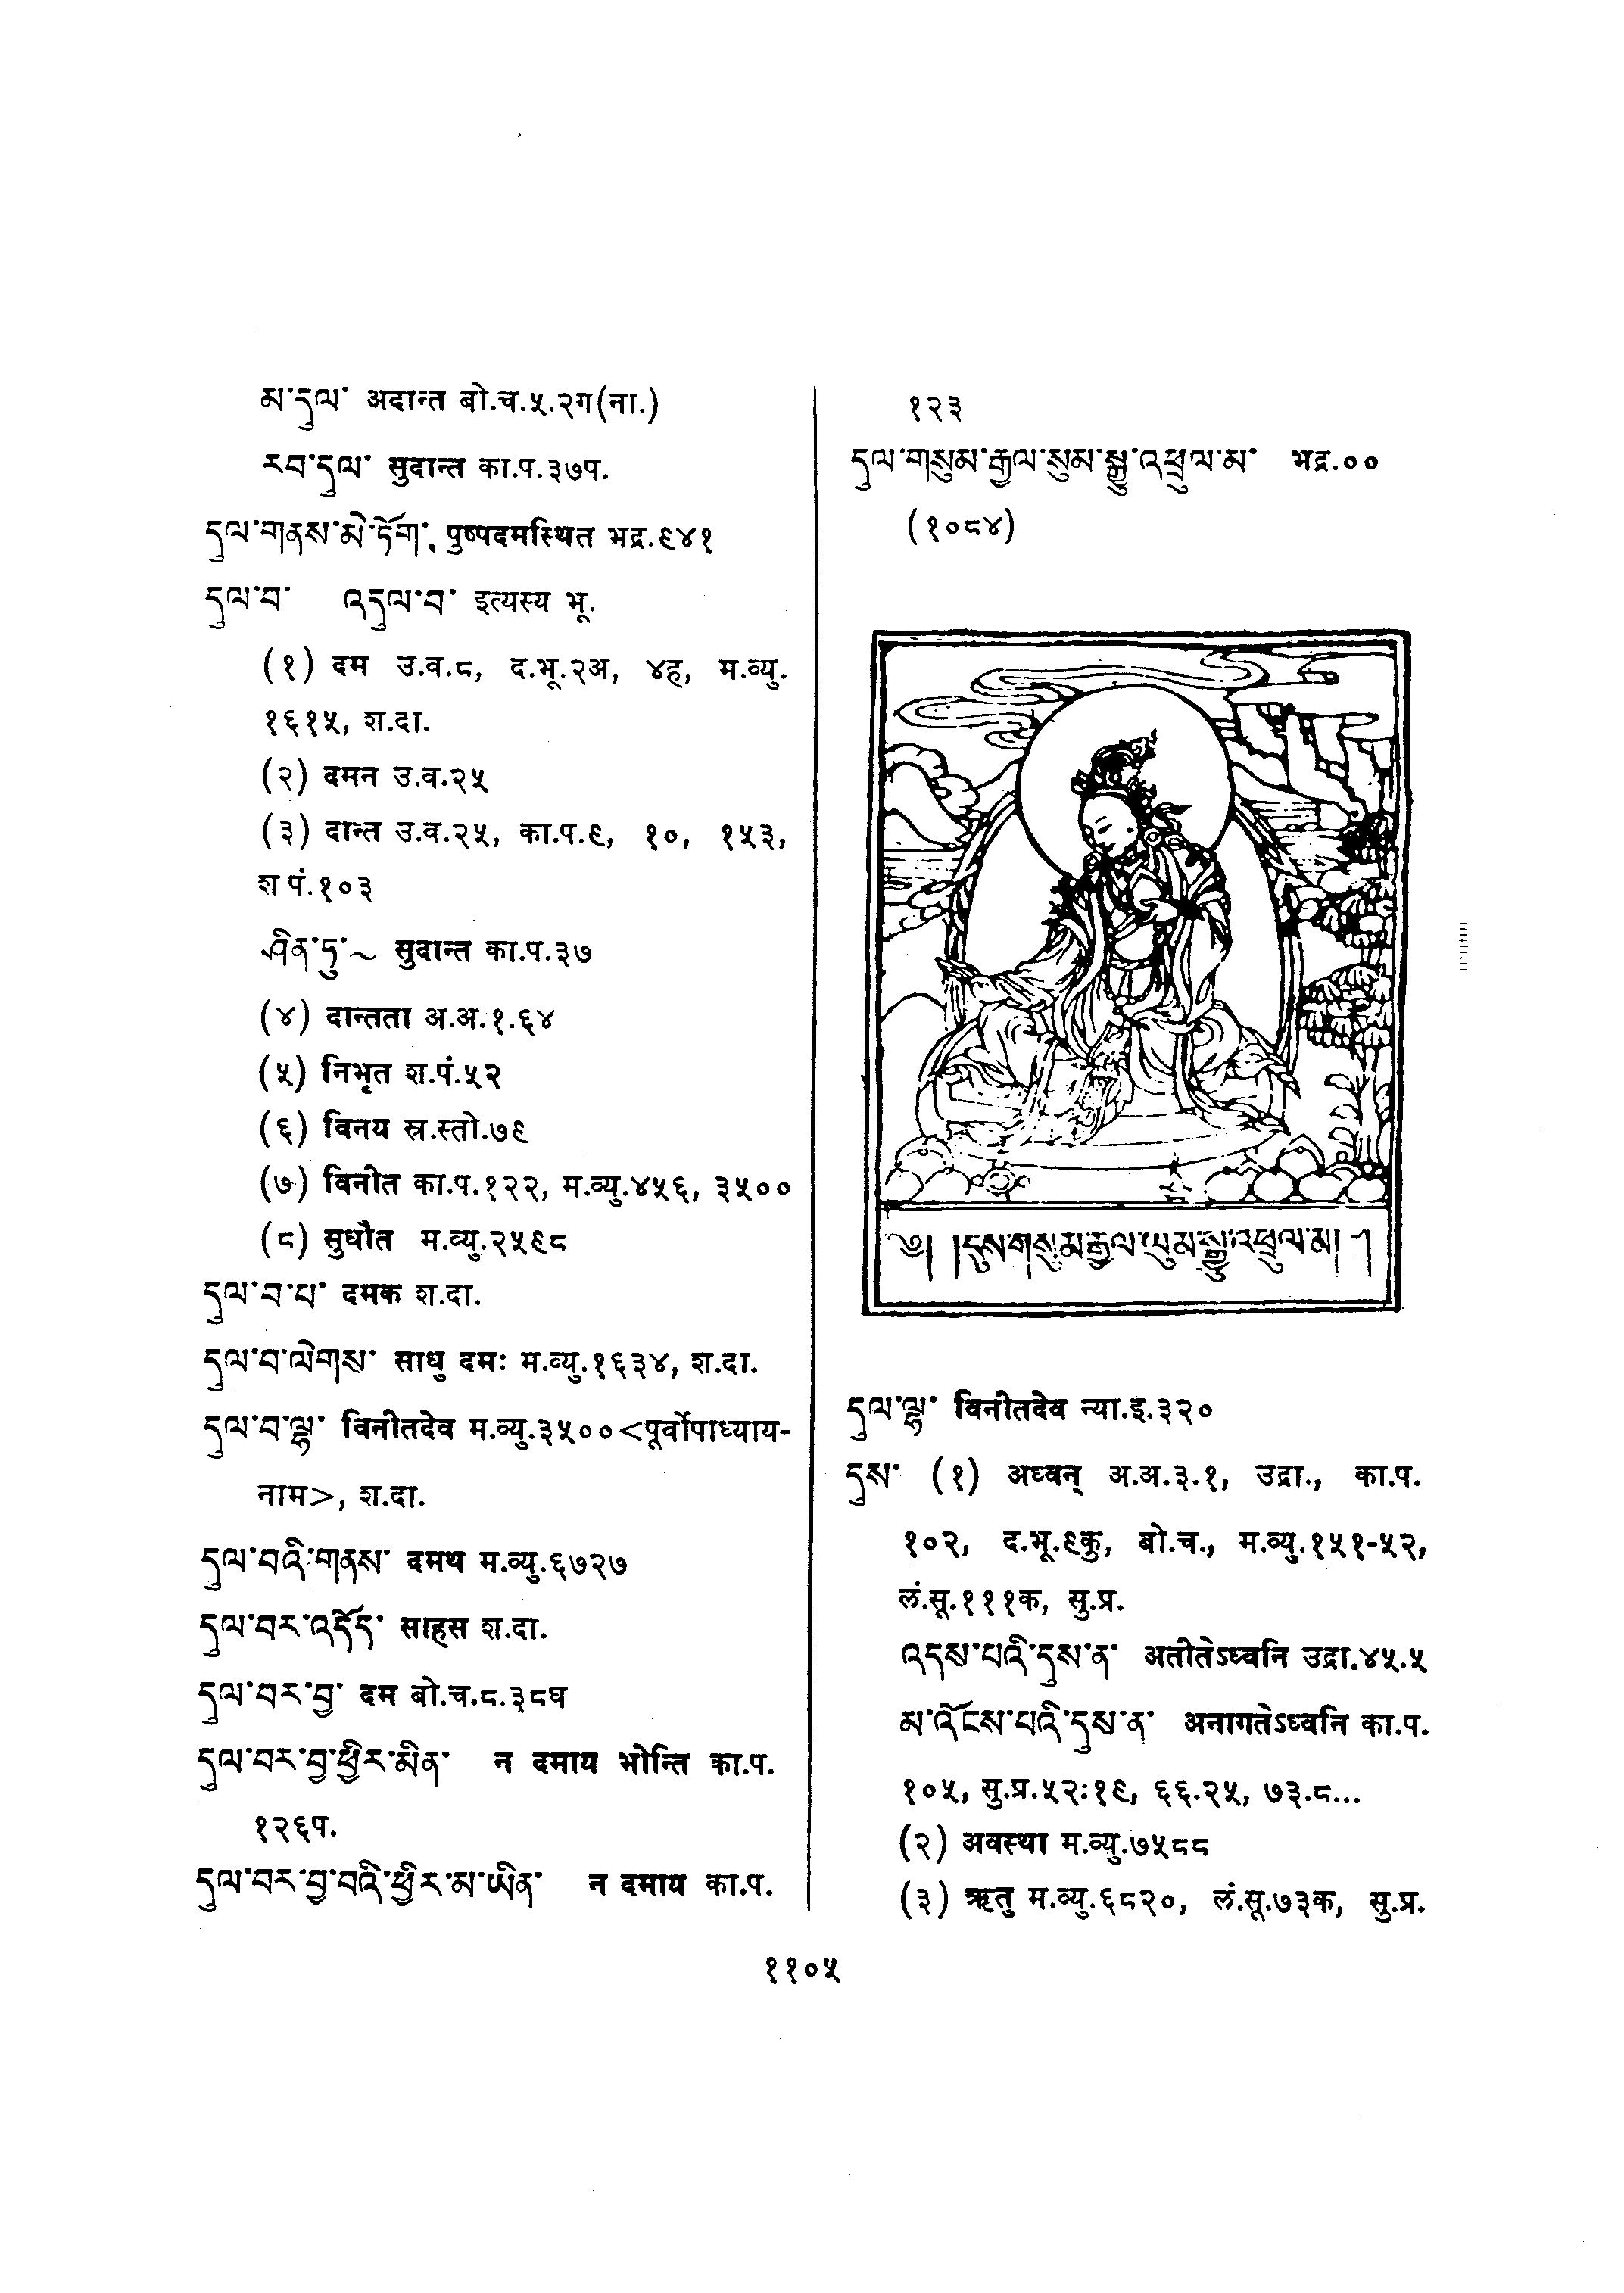 མ་དུལ་ अदान्त बो.च.५.२ग(ना.)
རབ་དུལ་ सुदान्त का.प.३७प.
དུལ་གནས་མེ་ཏོག་ पुष्पदमस्थित भद्र.९४१
དུལ་བ་ འདུལ་བ་ इत्यस्य भू.
(१) दम उ.व.८, द.भू.२अ, ४ह, म.व्यु.
१६१५, श.दा.
(२) दमन उ.व.२५
(३) दान्त उ.व.२५, का.प.९, १०, १५३,
श पं.१०३
ཤིན་ཏུ་~ सुदान्त का.प.३७
(४) दान्तता अ.अ.१.६४
(५) निभृत श.पं.५२
(६) विनय स्र.स्तो.७९
(७) विनीत का.प.१२२, म.व्यु.४५६, ३५००
(८) सुधौत म.व्यु.२५९८
དུལ་བ་པ་ दमक श.दा.
དུལ་བ་ལེགས་ साधु दमः म.व्यु.१६३४, श.दा.
དུལ་བ་ལྷ་ विनीतदेव म.व्यु.३५००<पूर्वोपाध्याय-
नाम>, श.दा.
དུལ་བའི་གནས་ दमथ म.व्यु.६७२७
དུལ་བར་འདོད་ साहस श.दा.
དུལ་བར་བྱ་ दम बो.च.८.३८घ
དུལ་བར་བྱ་ཕྱིར་མིན་ न दमाय भोन्ति का.प.
१२६प.
དུལ་བར་བྱ་བའི་ཕྱིར་མ་ཡིན་ न दमाय का.प.
१२३
དུལ་གསུམ་རྒྱལ་སུམ་སྒྱུ་འཕྲུལ་མ་ भद्र.००
(१०८४)
༄། །དུས་གསུམ་རྒྱལ་ཡུམ་སྒྱུ་འཕྲུལ་མ། །
དུལ་ལྷ་ विनीतदेव न्या.इ.३२०
དུས་ (१) अध्वन् अ.अ.३.१, उद्रा., का.प.
१०२, द.भू.९कु, बो.च., म.व्यु.१५१-५२,
लं.सू.१११क, सु.प्र.
འདས་པའི་དུས་ན་ अतीतेऽध्वनि उद्रा.४५.५
མ་འོངས་པའི་དུས་ན་ अनागतेऽध्वनि का.प.
१०५, सु.प्र.५२:१९, ६६.२५, ७३.८...
(२) अवस्था म.व्यु.७५८८
(३) ऋतु म.व्यु.६८२०, लं.सू.७३क, सु.प्र.
११०५